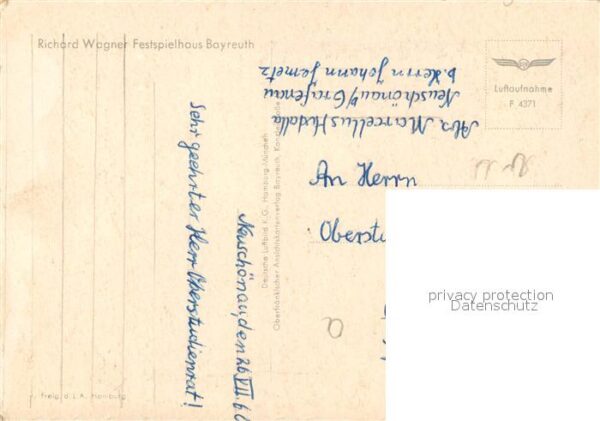 Richard Wagner Festspielhaus Bayreuth
Luftaufnahme
F 4371
Abs. Marcellus Hudalla
Neuschönau b/Grafenau
b. Herrn Johann Jemetz
An Herrn
Oberstu
Neuschönau, den 26 VII. 6
Sehr geehrter Herr Oberstudienrat!
Deutsche Luftbild K.G. Hamburg-München
Oberfränkischer Ansichtskartenverlag Bayreuth,
Freig. d. L.A. Hamburg
a
privacy protection
Datenschutz